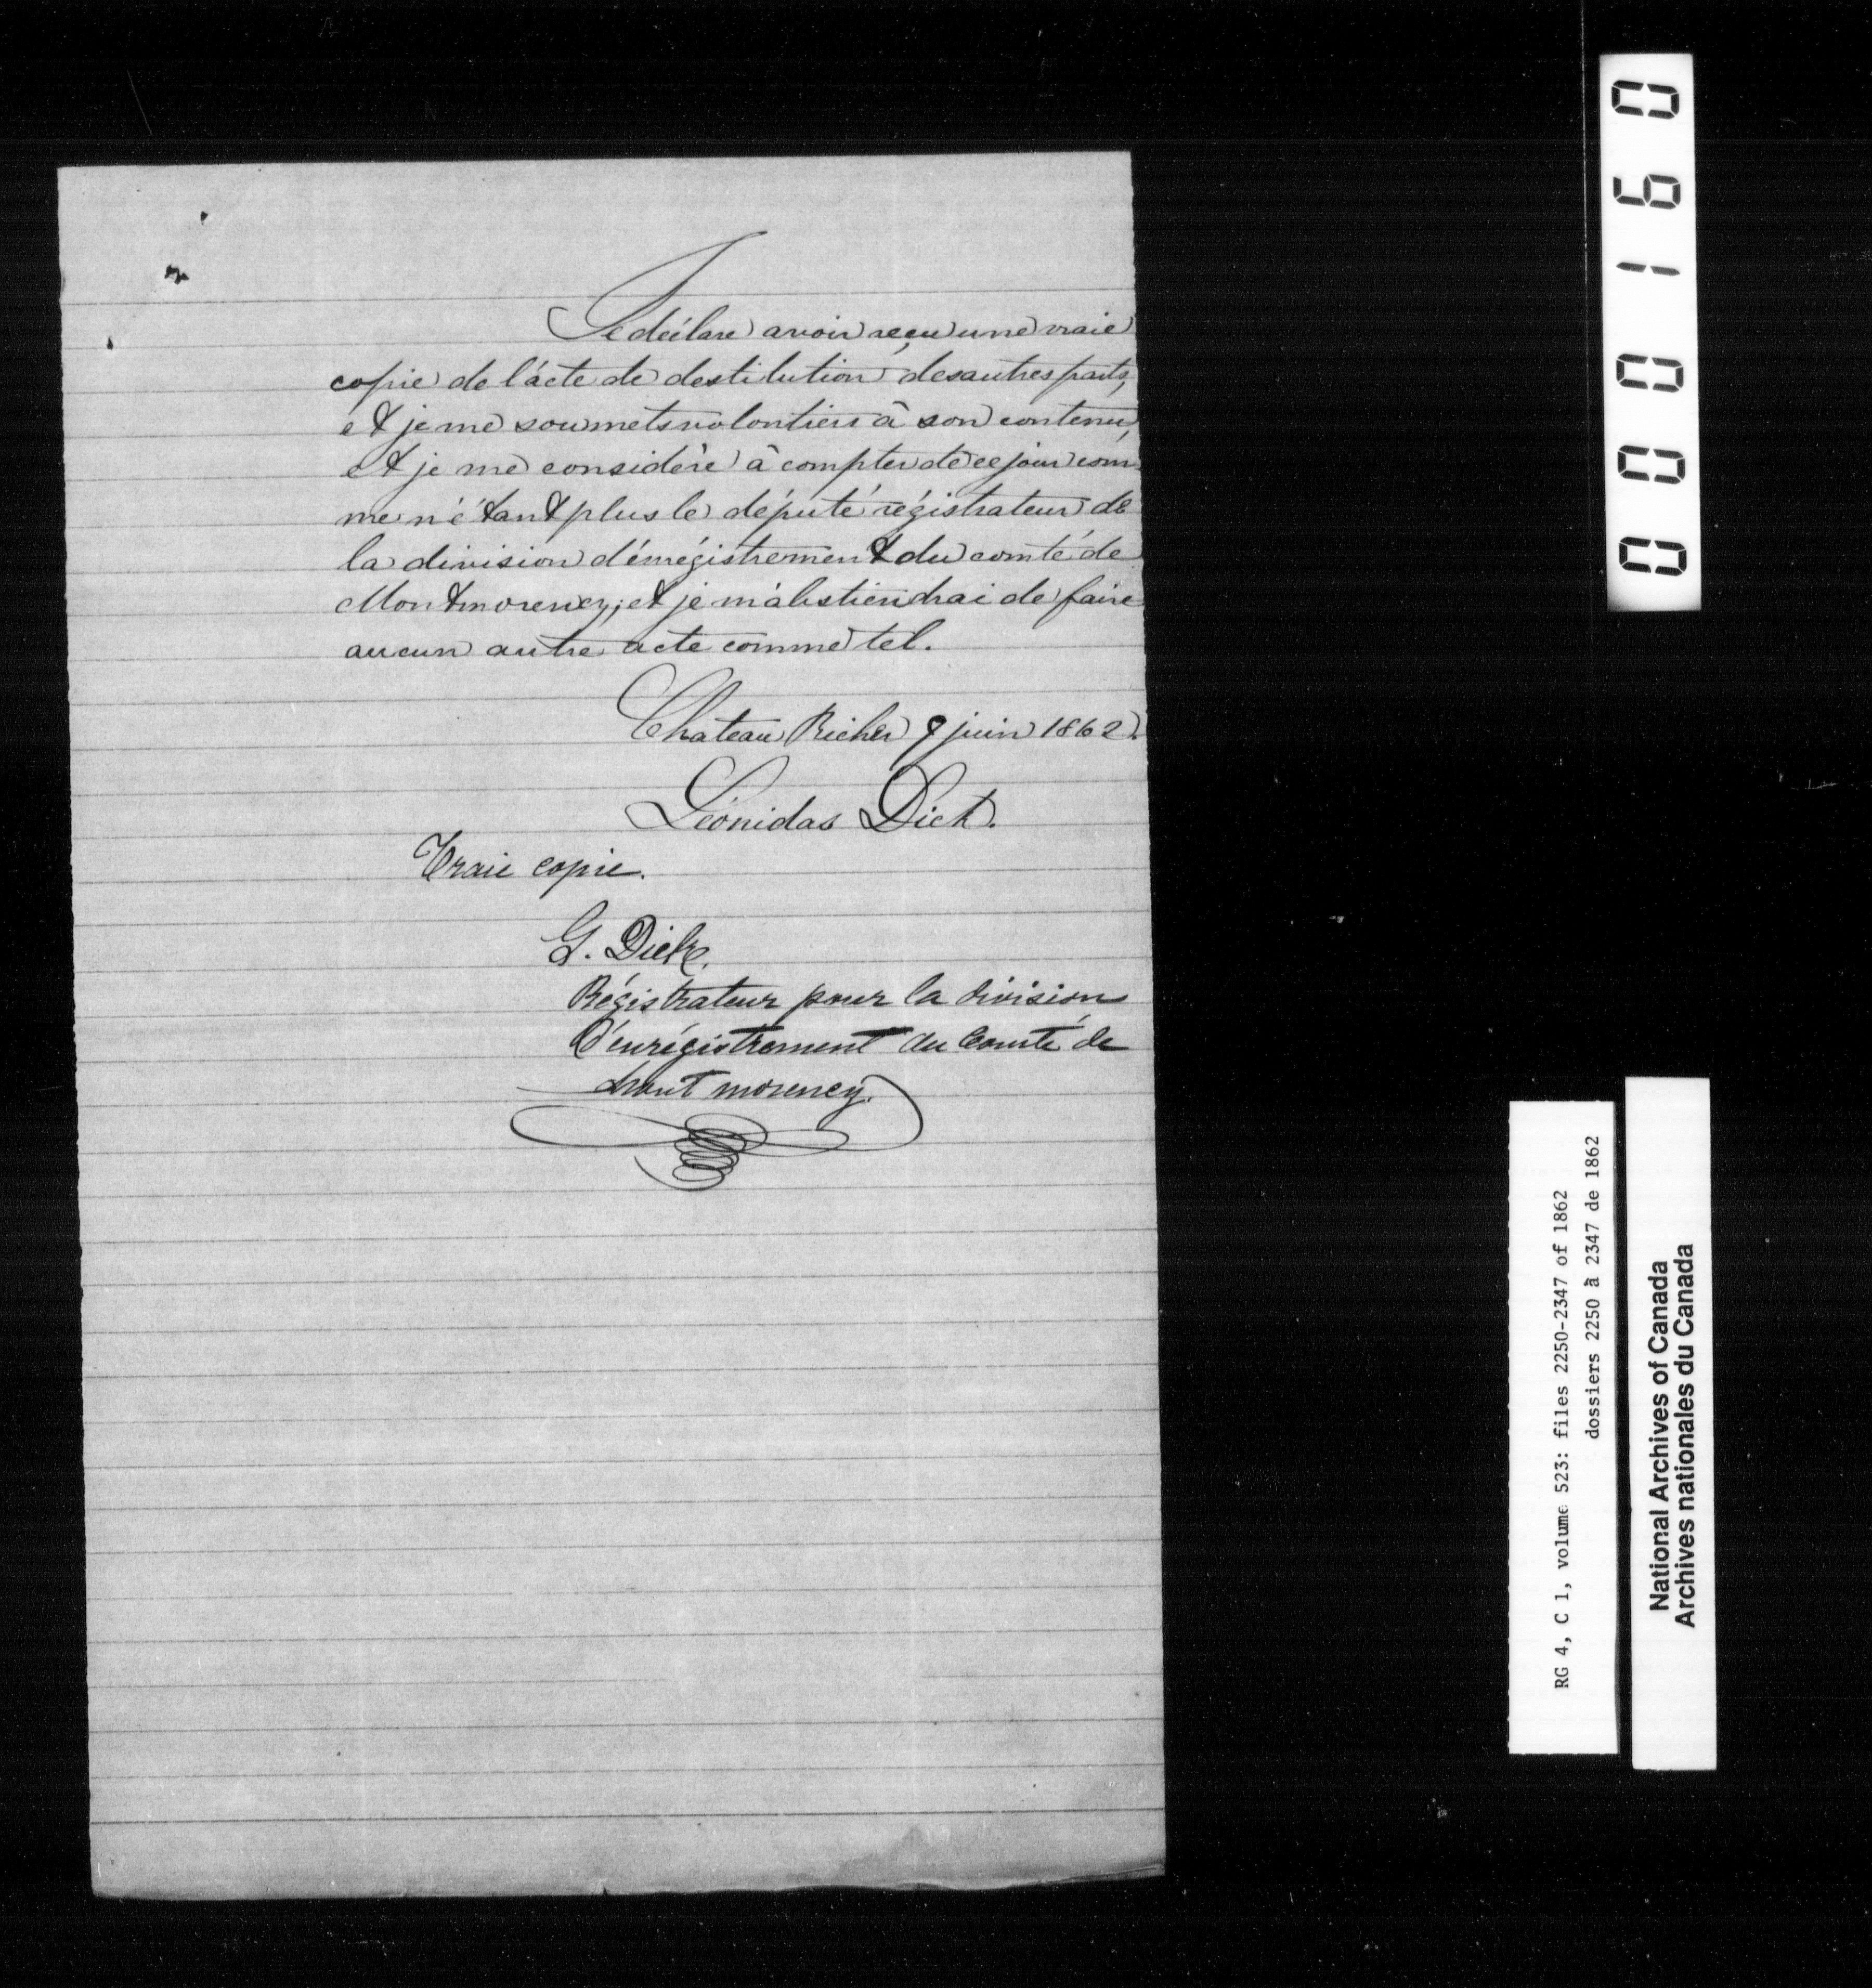 Je déclare avoir reçu une vraie
copie de l'acte de destitution des autres parts,
et je me soumets volontiers à son contenu,
et je me considère à compter de ce jour com-
me n'étant plus le député régistrateur de
la division d'enrégistrement du comté de
Montmorency; et je m'abstiendrai de faire
aucun autre acte comme tel.
Chateau Richer 9 juin 1862.
Léonidas Dick.
Vraie copie.
G. Dick,
Régistrateur pour la division
d'enrégistrement du Comté de
Montmorency.
000160
RG 4, C 1, volume 523: files 2250-2347 of 1862
dossiers 2250 à 2347 de 1862
National Archives of Canada
Archives nationales du Canada